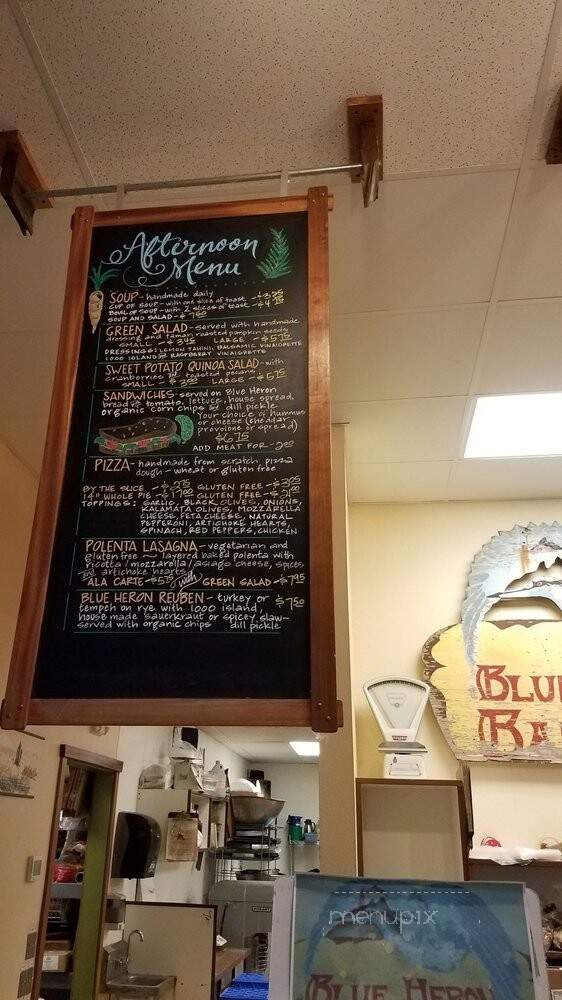 Afternoon
Menu
SOUP - handmade daily
CUP OF SOUP - with one slice of toast - $3.25
BOWL OF SOUP - with 2 slices of toast - $4.
SOUP AND SALAD - $7.50
GREEN SALAD - served with handmade
dressing and tamari roasted pumpkin seeds
SMALL - $3.45 LARGE - $5.75
DRESSINGS: LEMON TAHINI, BALSAMIC VINAIGRETTE
1000 ISLAND RASPBERRY VINAIGRETTE
SWEET POTATO QUINOA SALAD - with
cranberries toasted pecans
SMALL $3. LARGE - $5.75
SANDWICHES - served on Blue Heron
bread tomato, lettuce, house spread,
organic corn chips dill pickle
Your choice of hummus
or cheese (cheddar
provolone or spread)
$6.75
ADD MEAT FOR - 2.00
PIZZA - handmade from scratch pizza
dough - wheat or gluten free
BY THE SLICE - $2.75 GLUTEN FREE - $3.25
14" WHOLE PIE - $17.00 GLUTEN FREE - $21.00
TOPPINGS: GARLIC, BLACK OLIVES, ONIONS,
KALAMATA OLIVES, MOZZARELLA
CHEESE, FETA CHEESE, NATURAL
PEPPERONI, ARTICHOKE HEARTS,
SPINACH, RED PEPPERS, CHICKEN
POLENTA LASAGNA - vegetarian and
gluten free ~ layered baked polenta with
ricotta/mozzarella/asiago cheese, spices
artichoke hearts
ALA CARTE - $5.75 with GREEN SALAD - $7.95
BLUE HERON REUBEN - turkey or
tempeh on rye with 1000 island, $7.50
house made sauerkraut or spicey slaw -
served with organic chips dill pickle
BLU
BA
menupix
BLUE HERON